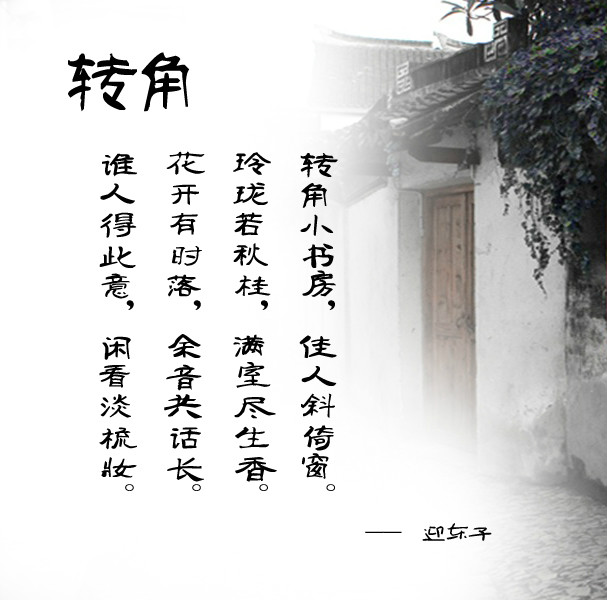 转角
转角小书房，佳人斜倚窗。
玲珑若秋桂，满室尽生香。
花开有时落，余音共话长。
谁人得此意，闲看淡梳妆。
—— 迎东子